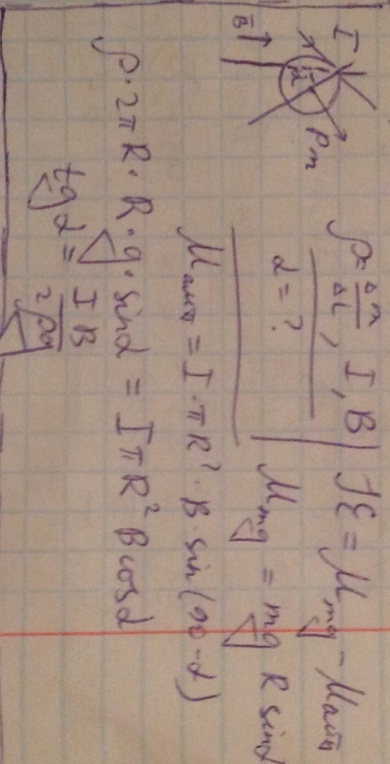 I
B̄↑
α
Pm
ρ = Δm/Δl, I, B | Jε = Mmg - Mамп
α = ? | Mmg = mg R sinα
Mамп = I·πR²·B·sin(90-α)
ρ·2πR·R·g·sinα = IπR²B cosα
tgα = IB/2ρg